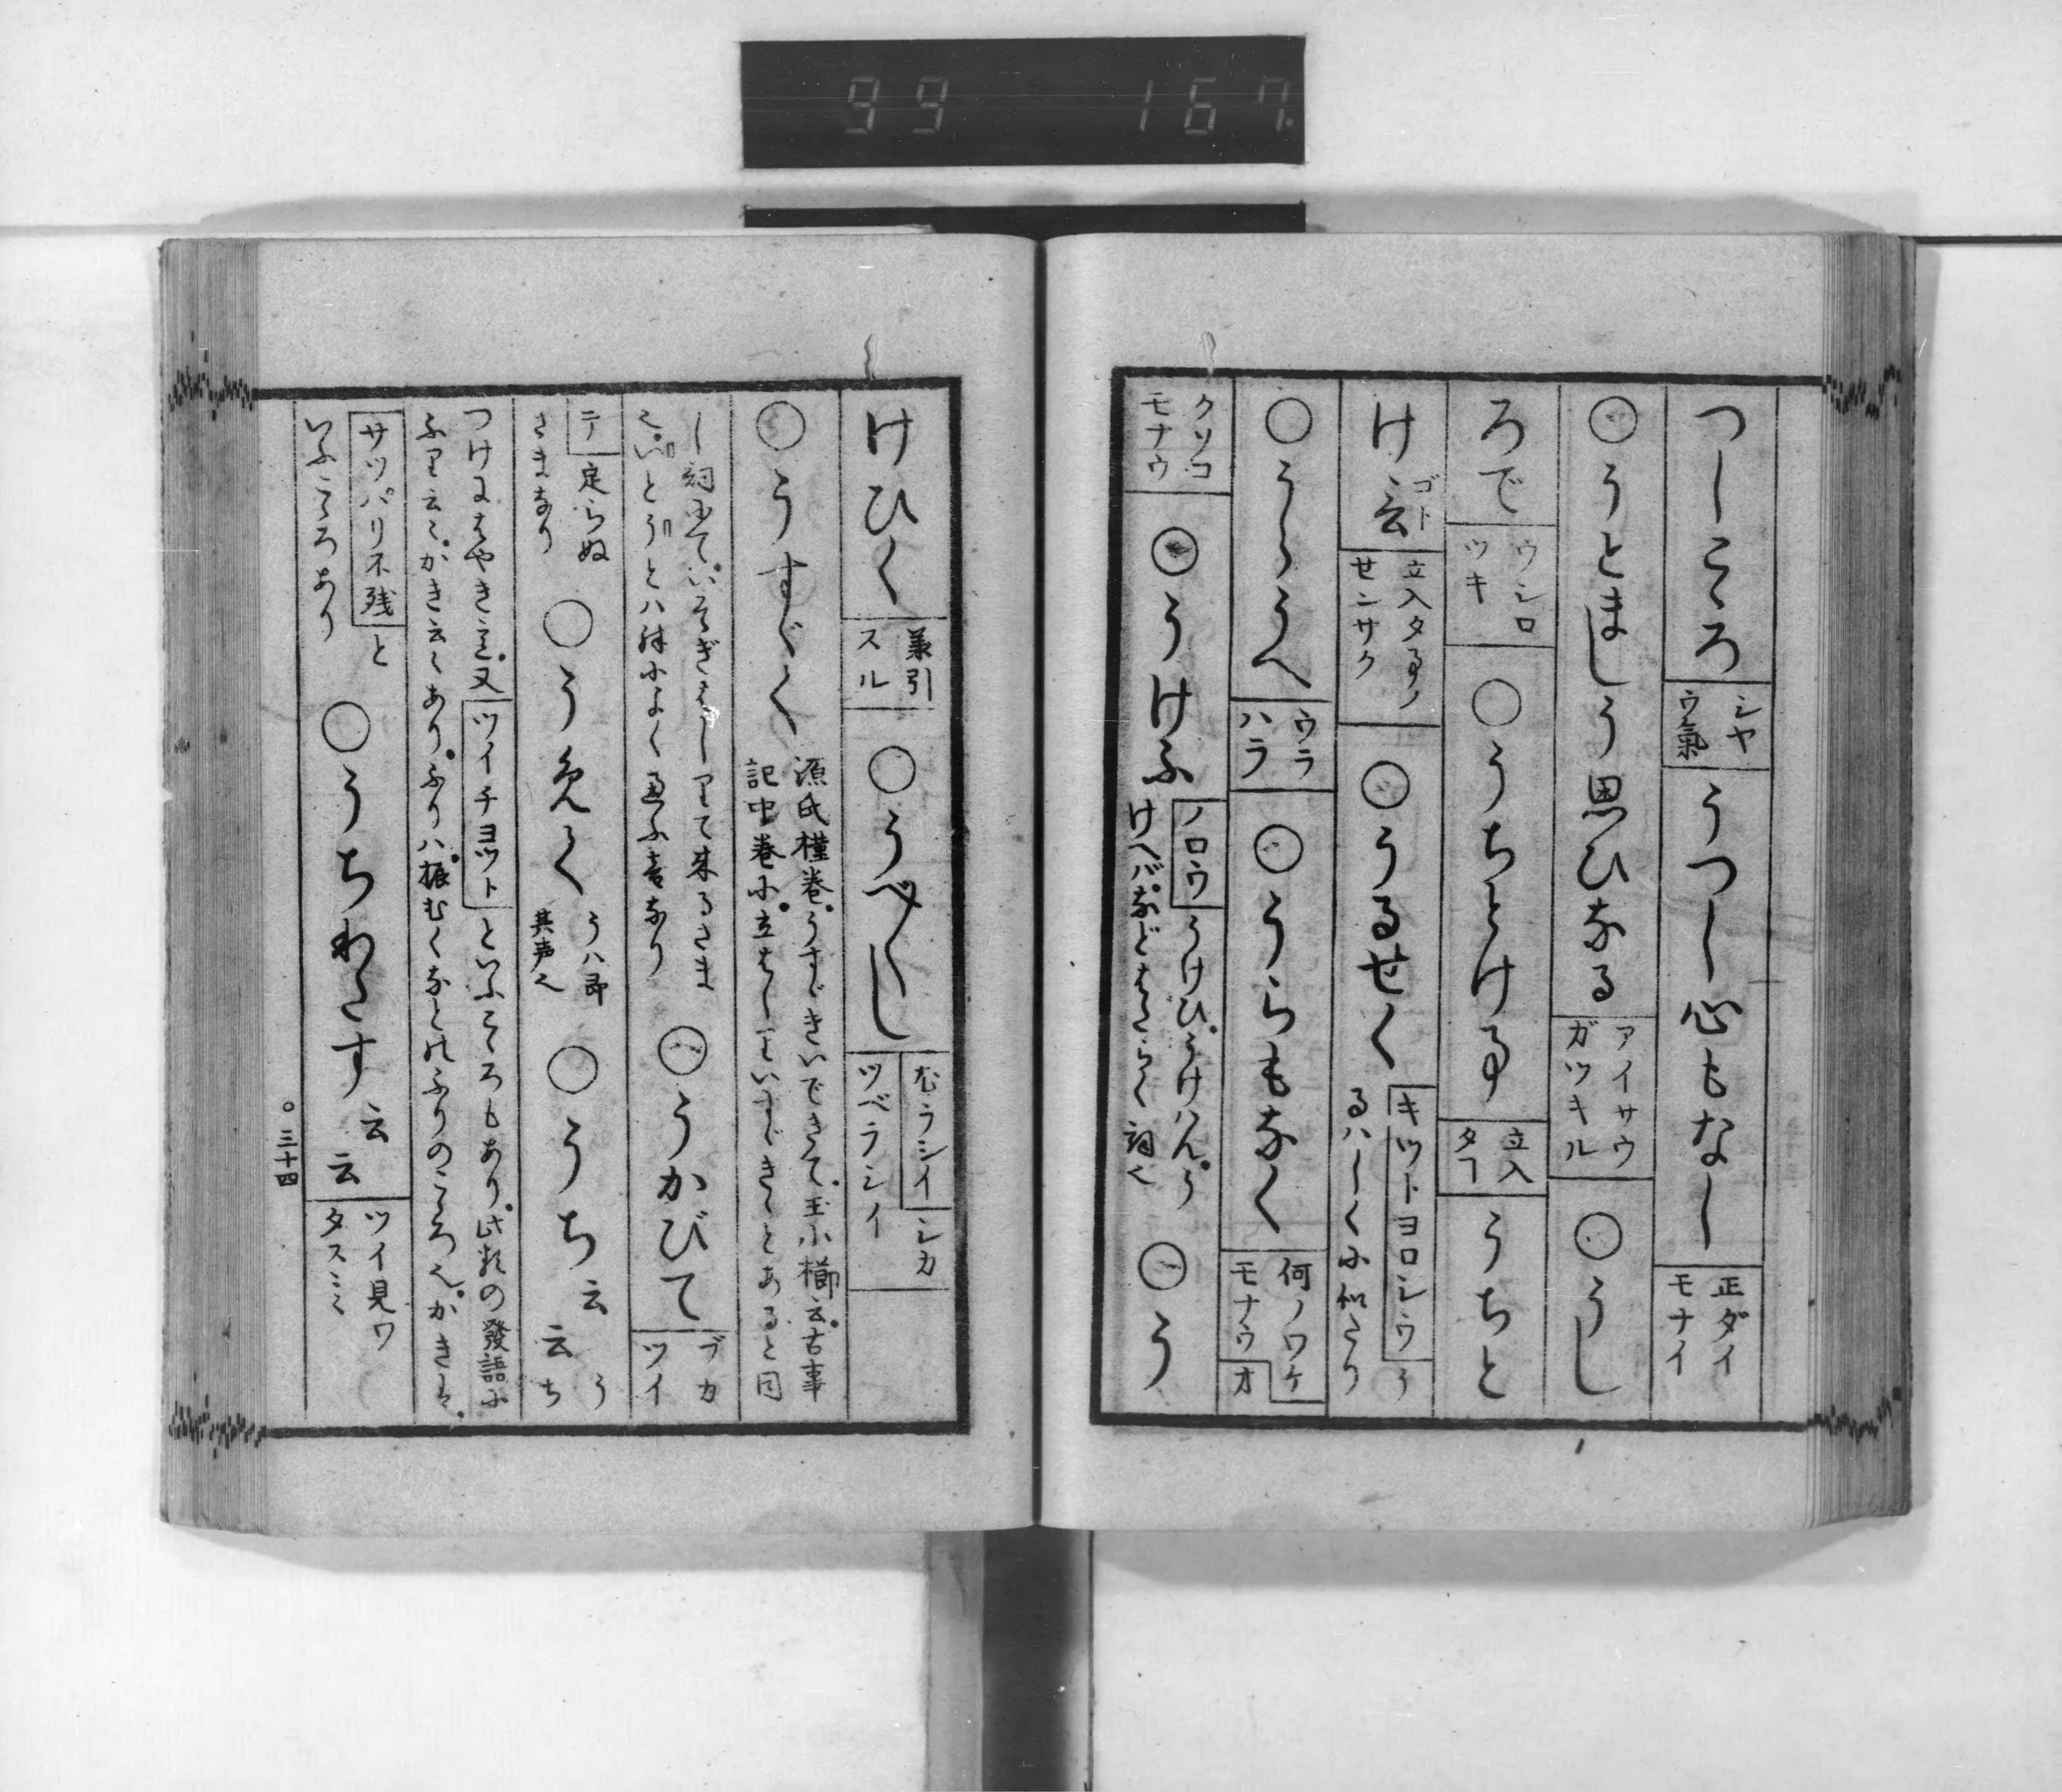 99 167.
つしころ シヤウ氣 うつし心もなし 正ダイモナイ
○うとましう思ひなる アイサウガツキル ○うし
ろで ウシロツキ ○うちとける 立入タ うちと
け言 ゴト 立入タ事ノセンサク ○うるせく キツトヨロシウ うるハしくに似たり
○うらうへ ウラハラ ○うらもなく 何ノワケモナウ オ
クソコモナウ ○うけふ ノロウ うけひ うけハん うけへバなどはたらく詞也 ○う
けひく 兼引スル ○うべ〳〵し むラシイ シカツベラシイ
○うすゞく 源氏槿巻 うすゞきいできて 玉小櫛云 古事記中巻に 立はしりいすゝきとあると同
し詞にて いそぎはしりて来るさま也 いとうとハ殊によく通ふ音なり ○うかびて ブカツイ
テ 定らぬさまなり ○うめく うハ即其声也 ○うち云云 うち
つけにはやき意 又 ツイチヨツト といふこゝろもあり 此類の發語に
ふり云々 かき云々あり ふりハ振むくなとのふりのこゝろ也 かきは
サツパリ不残 といふこゝろあり ○うちわたす云云 ツイ見ワタスミヽ
○三十四